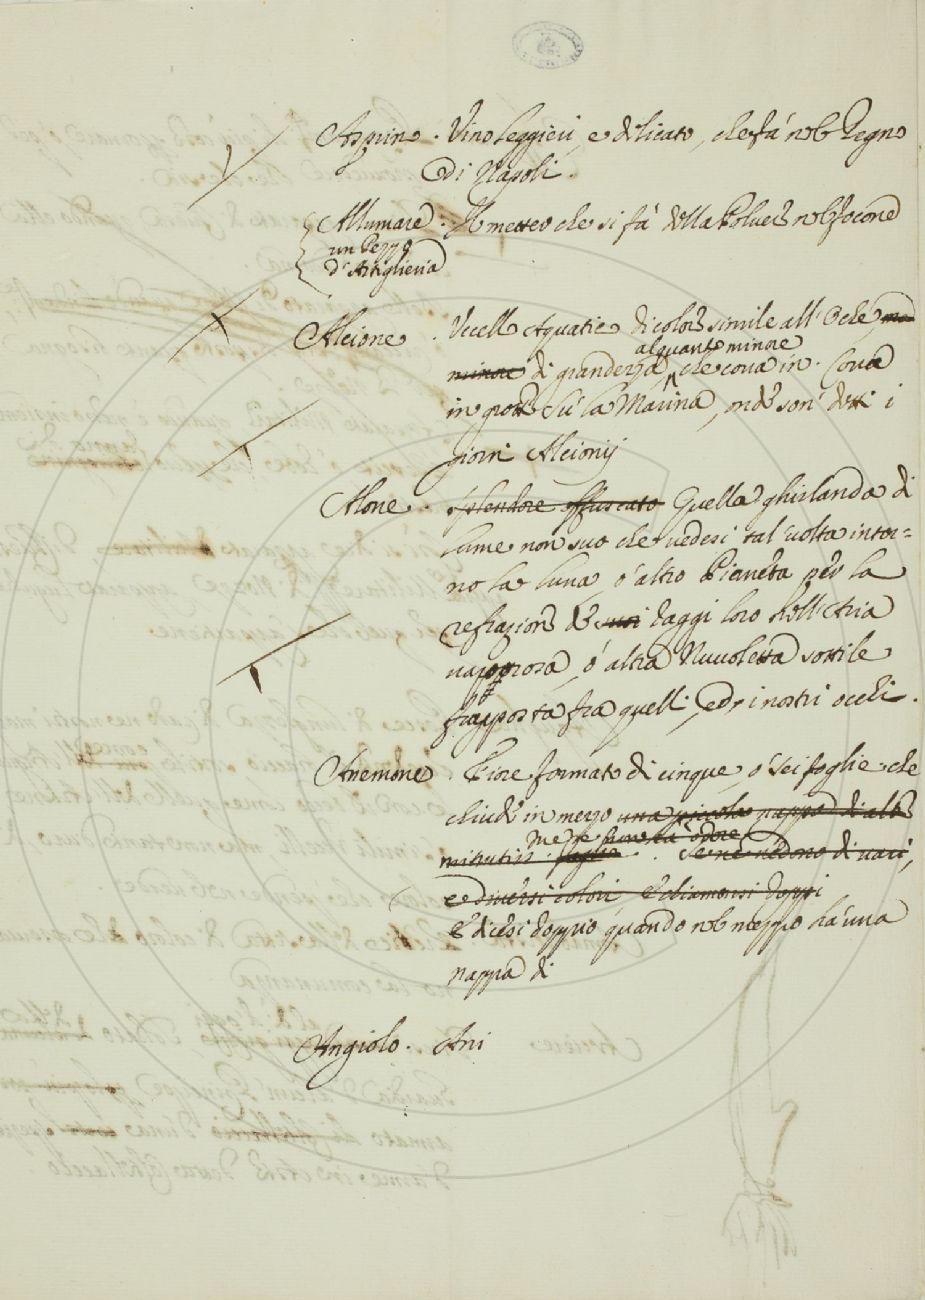 Asprin . Vino leggieri, e dilicato, che fá nel Regno
di Napoli .
Allumare . Il metter che si fá della Polvere nel focone
un Pezzo
d'Artiglieria
Alcione . Uccello Aquatico di colore simile all'Oche, ma
alquanto minore
minore di grandezza, che cova in . Cova
in grotte Sú la Marina, onde son detti i
giorni Alcionij
Alone . splendore offuscato Quella ghirlanda di
lume non suo che vedesi tal volta intor=
no la luna, ó altro Pianeta per la
refrazione de suoi raggi loro nell'Aria
vaporosa, ó altra Nuvoletta sottile
frapposta fra quelli, ed i nostri occhi .
Anemone . Fiore formato di cinque, o sei foglie che
chiude in mezzo una piccola nappa di altre
minutiss. foglie . Se ne vedono di varj,
e diversi colori, E chiamansi doppi
E dicesi doppio quando nel mezzo há una
nappa di
Angiolo . Ani